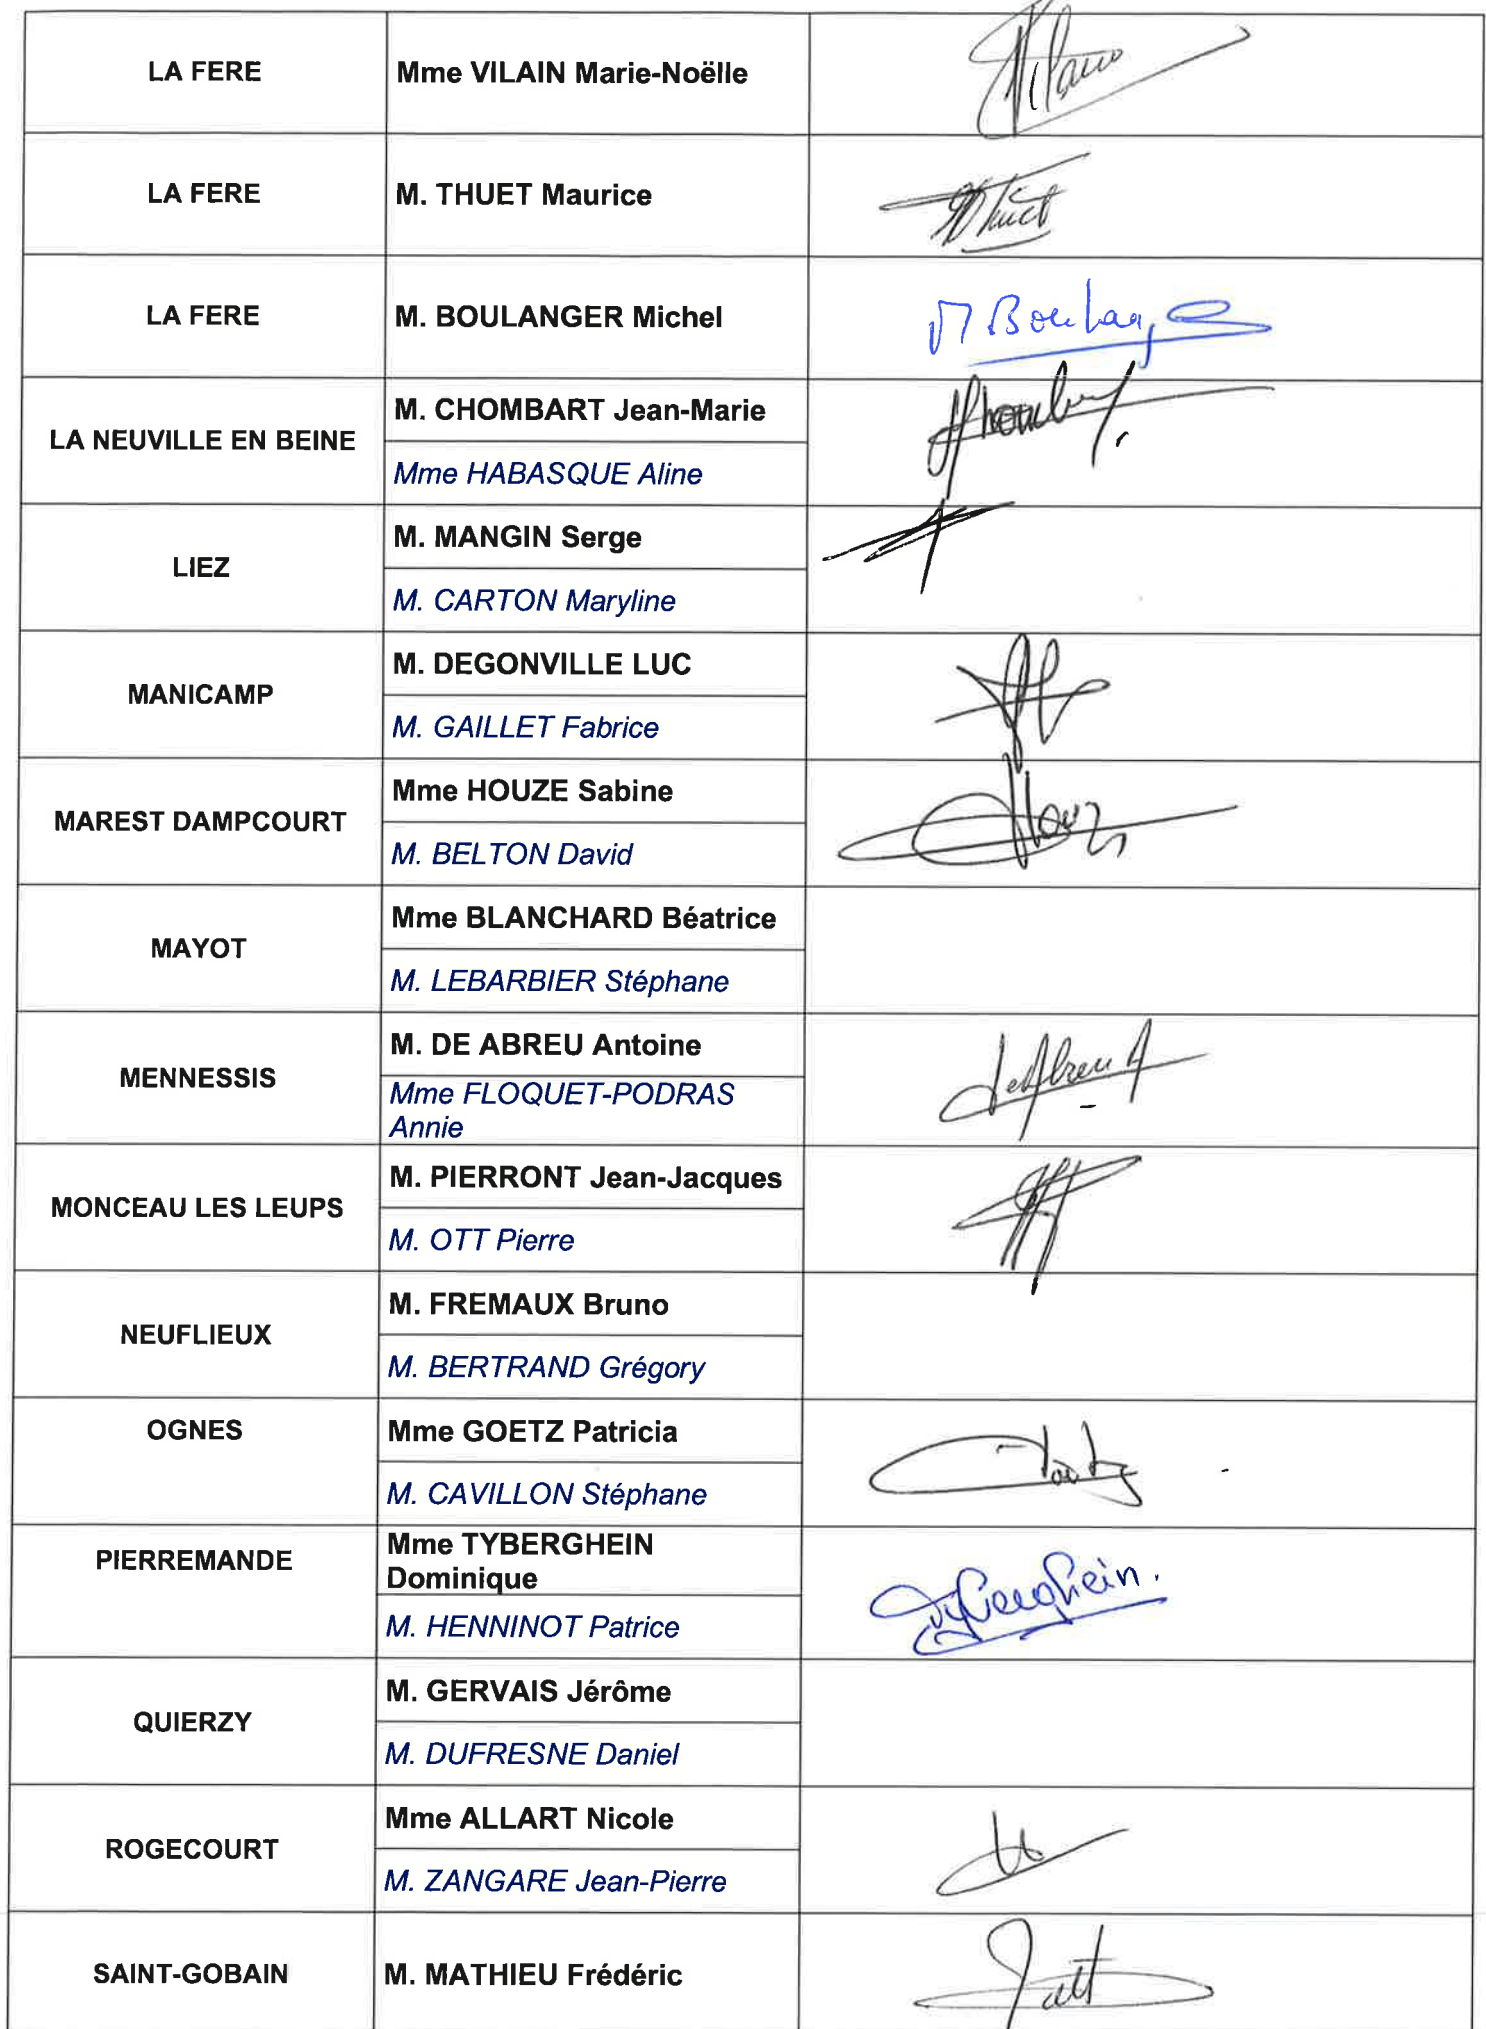 LA FERE
Mme VILAIN Marie-Noëlle
Vilain
LA FERE
M. THUET Maurice
Thuet
LA FERE
M. BOULANGER Michel
M Boulanger
LA NEUVILLE EN BEINE
M. CHOMBART Jean-Marie
Mme HABASQUE Aline
LIEZ
M. MANGIN Serge
M. CARTON Maryline
MANICAMP
M. DEGONVILLE LUC
M. GAILLET Fabrice
MAREST DAMPCOURT
Mme HOUZE Sabine
M. BELTON David
MAYOT
Mme BLANCHARD Béatrice
M. LEBARBIER Stéphane
MENNESSIS
M. DE ABREU Antoine
Mme FLOQUET-PODRAS
Annie
De Abreu A
MONCEAU LES LEUPS
M. PIERRONT Jean-Jacques
M. OTT Pierre
NEUFLIEUX
M. FREMAUX Bruno
M. BERTRAND Grégory
OGNES
Mme GOETZ Patricia
M. CAVILLON Stéphane
PIERREMANDE
Mme TYBERGHEIN
Dominique
M. HENNINOT Patrice
Tyberghein.
QUIERZY
M. GERVAIS Jérôme
M. DUFRESNE Daniel
ROGECOURT
Mme ALLART Nicole
M. ZANGARE Jean-Pierre
SAINT-GOBAIN
M. MATHIEU Frédéric